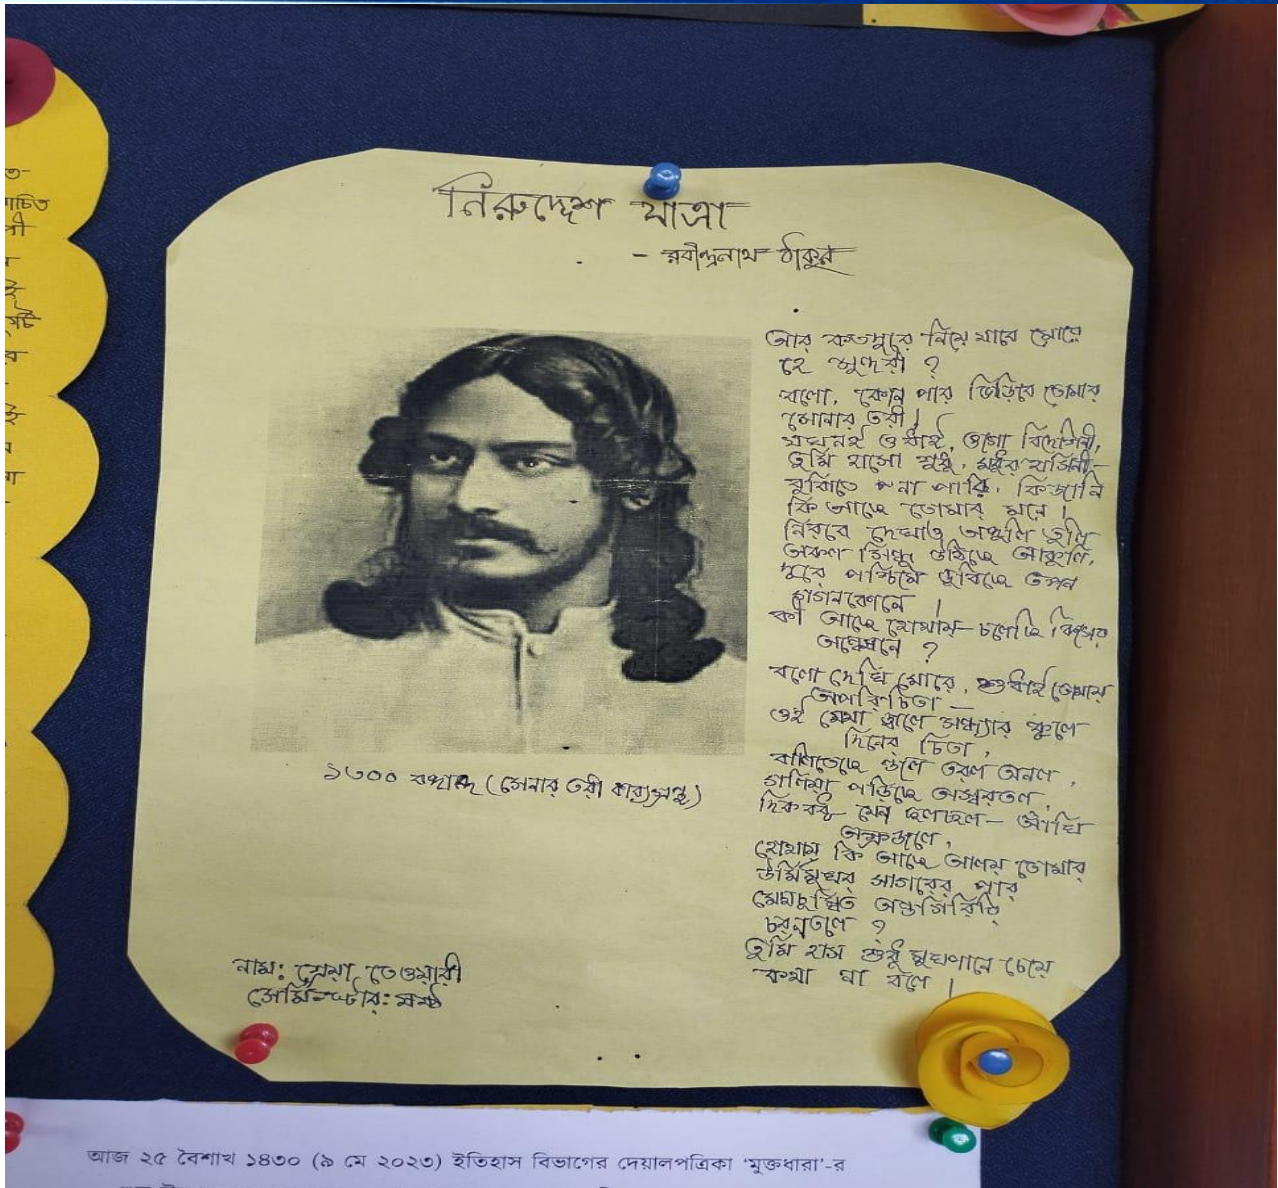 নিরুদ্দেশ যাত্রা
- রবীন্দ্রনাথ ঠাকুর
আর কতদূরে নিয়ে যাবে মোরে
হে সুন্দরী ?
বলো, কোন পার ভিড়িবে তোমার
সোনার তরী।
যখনই শুধাই, ওগো বিদেশিনী,
তুমি হাসো শুধু, মধুর হাসিনী-
বুঝিতে না পারি, কি জানি
কি আছে তোমার মনে।
নিরবে দেখাও অঙ্গুলি তুলি
অকূল সিন্ধু উঠিছে আকুলি,
দূরে পশ্চিমে ডুবিছে তপন
গগনকোনে।
কী আছে হোথায়- চলেছি কিসের
অন্বেষনে ?
বলো দেখি মোরে, শুধাই তোমায়
অপরিচিতা -
ওই যেথা জ্বলে সন্ধ্যার কূলে
দিনের চিতা,
ঝলিতেছে জলে তরল অনল,
গলিয়া পড়িছে অম্বরতল,
দিকবধূ যেন ছলছল- আঁখি
অশ্রুজলে,
হোথায় কি আছে আলয় তোমার
উর্মিমুখর সাগরের পার
মেঘচুম্বিত অস্তগিরির
চরনতলে ?
তুমি হাস শুধু মুখপানে চেয়ে
কথা না বলে।
১৩০০ বঙ্গাব্দ (সোনার তরী কাব্যগ্রন্থ)
নাম: শ্রেয়া তেওয়ারী
সেমিস্টার: ষষ্ঠ
আজ ২৫ বৈশাখ ১৪৩০ (৯ মে ২০২৩) ইতিহাস বিভাগের দেয়ালপত্রিকা ‘মুক্তধারা’-র